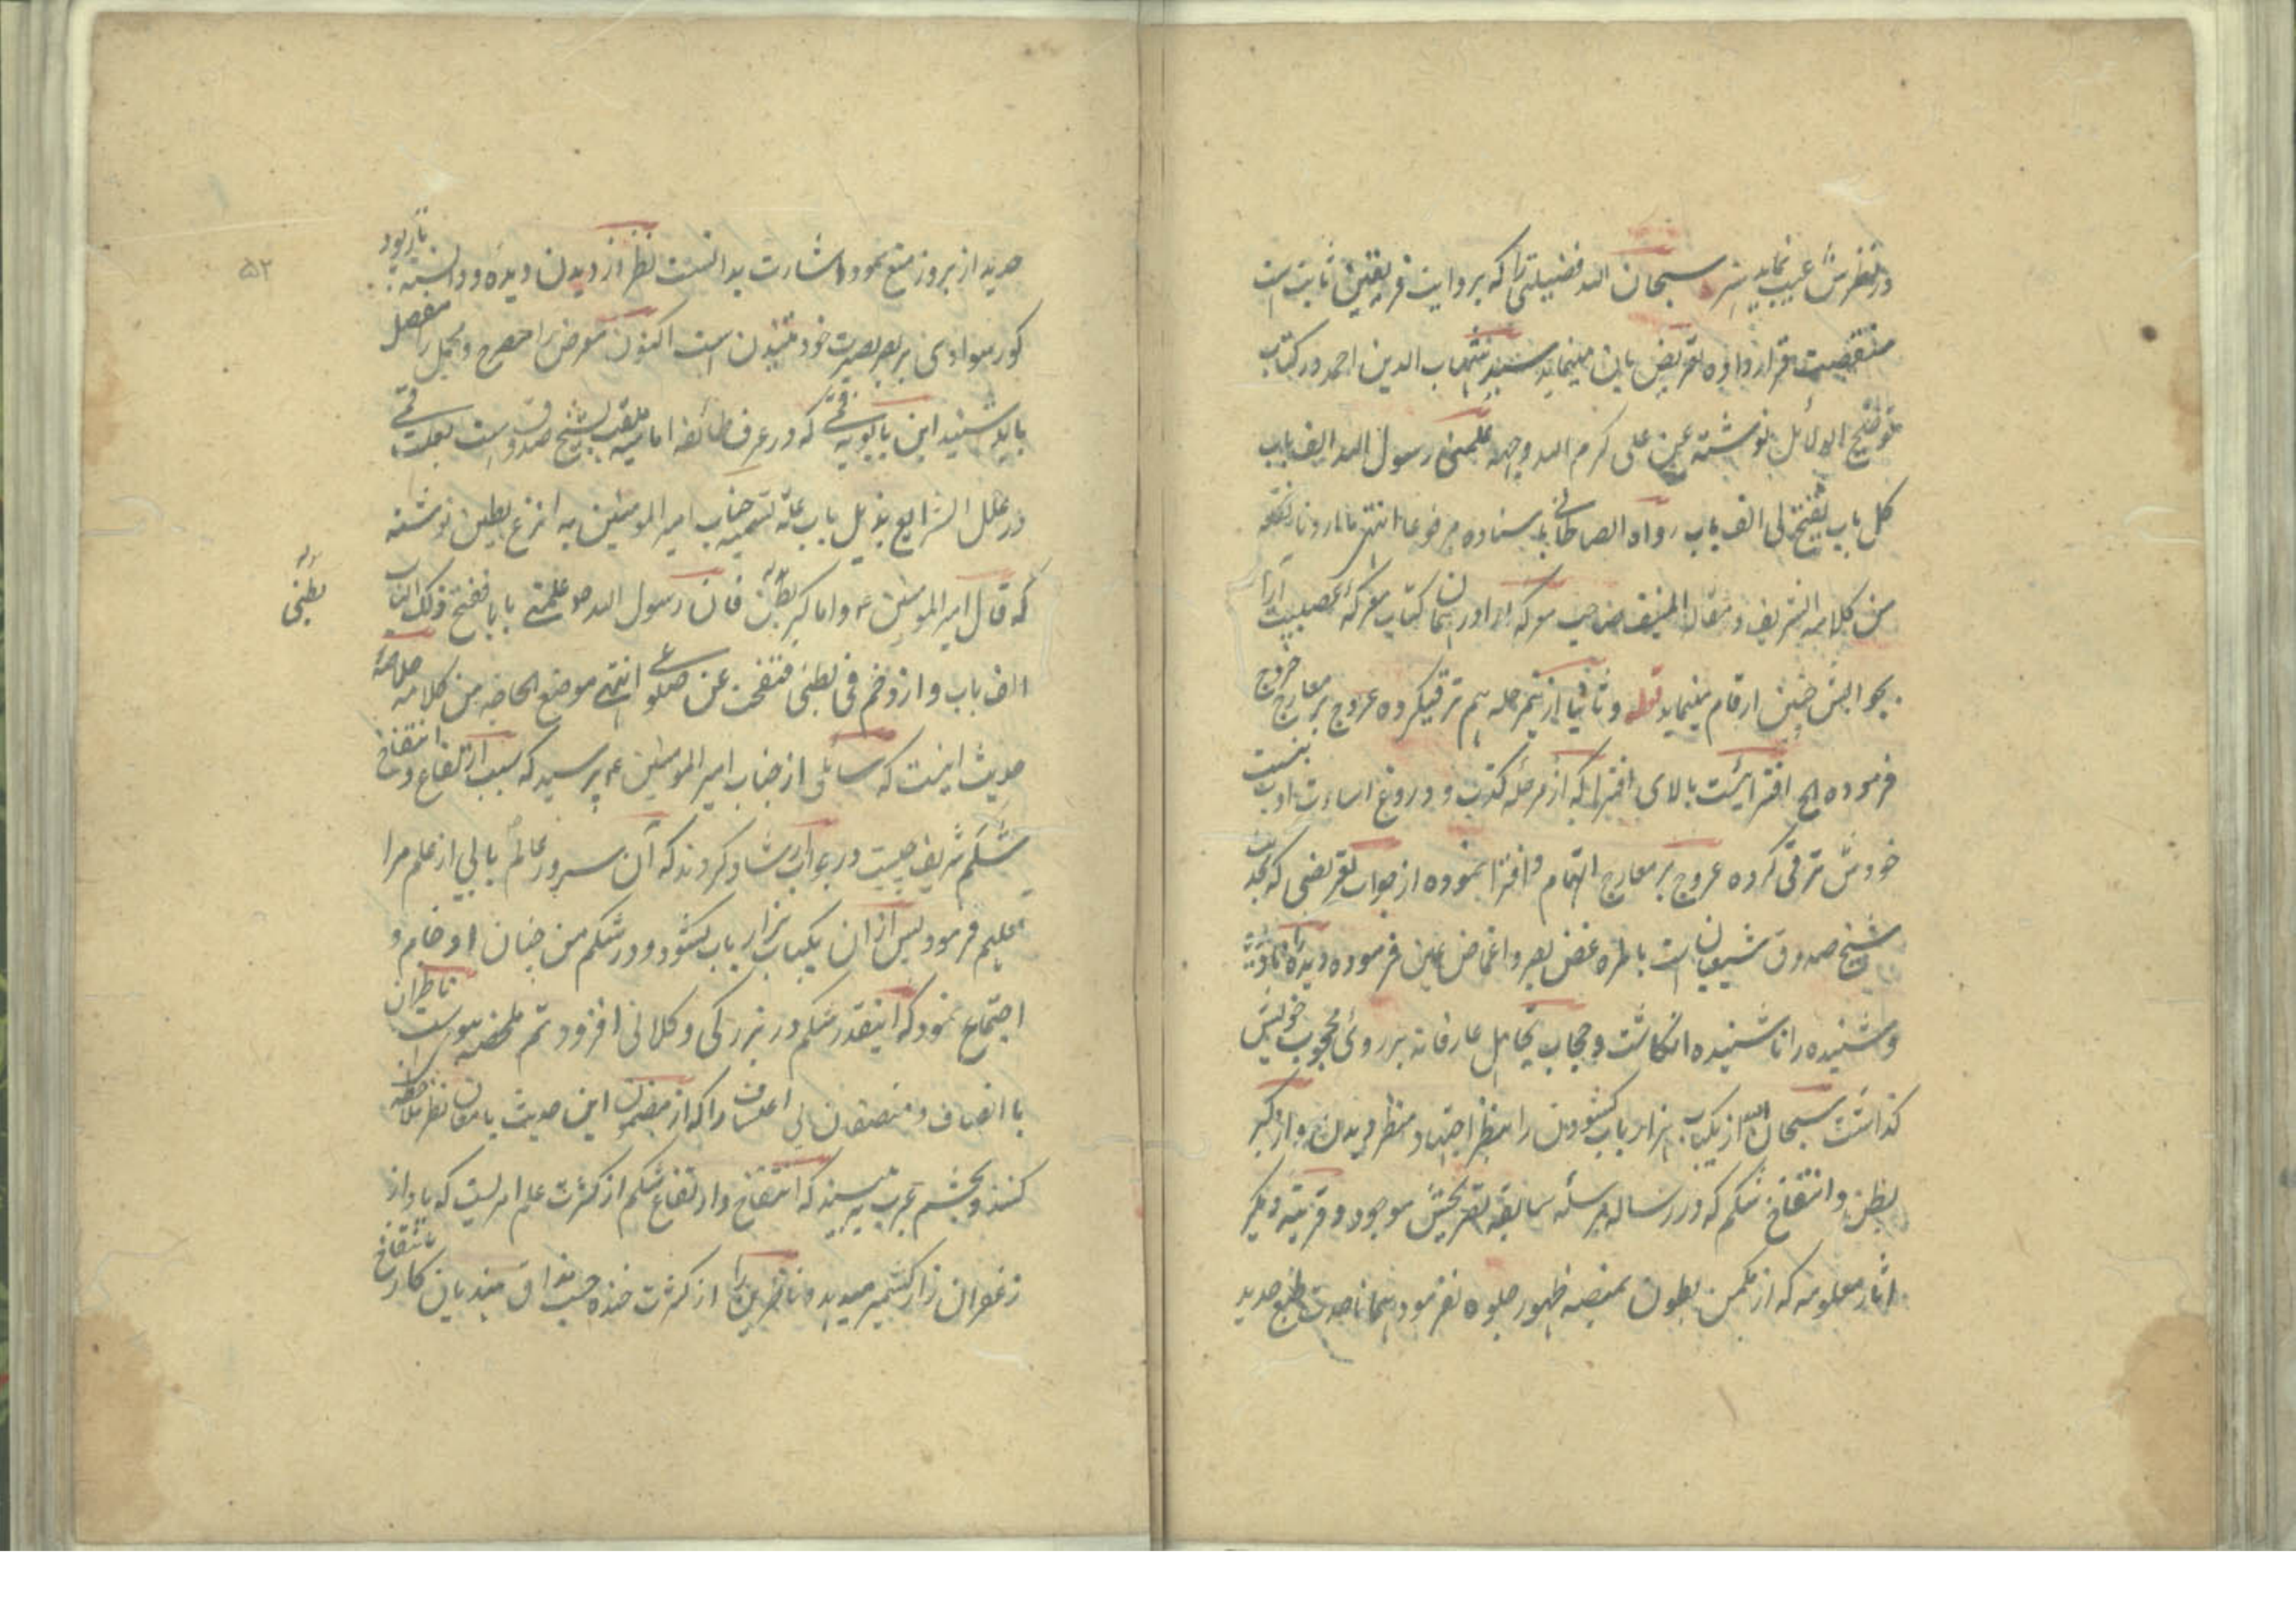 در نظرش عیب نماید شر سبحان الله فضیلتی را که بروایت فریقین ثابت است
منقصت قرار داده تعریض بان مینماید سید شهاب الدین احمد در کتاب
توضیح الدلائل نوشته عن علی کرم الله وجهه علمنی رسول الله الف باب
کل باب یفتح لی الف باب رواه الصالحانی باسناده مرفوعا انتهی ما اردنا نقله
من کلامه الشریف و مقاله المنیف صاحب معرکه ارا در همان کتاب معرکه عصبیت آرا
بجوابش چنین ارقام مینماید قوله و ثانیا ازینمرحله هم ترقیکرده عروج بر معارج خروج
فرموده الخ افترائیست بالای افترا که از مرحله کذب و دروغ اساءت ادب بنسبت
خودش ترقی کرده عروج بر معارج اتهام و افترا نموده از جواب تعریضی که بحدیث
شیخ صدوق شیعیان است باطره غض بصر و اغماض عین فرموده دیده را نادیده
و شنیده را ناشنیده انگاشت و حجاب تجاهل عارفانه بر روئی محجوب خویش
گذاشت سبحان الله از یکباب هزار باب کشودن را بنظر اجتهاد منظر دیدن و از کبر
بطن و انتفاخ شکم که در رساله مرسله سابقه تصریحش موجود و قرینه ذکر
اثار معلومه که از مکمن بطون بمنصه ظهور جلوه نفرمود همانا حدت طبع حدید
حدید از بروز منع نمود اشارت بدانست نظر از دیدن دیده و دانسته بازبود
کور سوادی بر بصر بصیرت خود تنیدن است اکنون معرض را مصرح و مجمل را مفصل
باید شنید ابن بابویه قمی که در عرف طائفه امامیه ملقب بشیخ صدوق است
در علل الشرایع بذیل باب علة تسمیه جناب امیر المومنین به انزع بطین نوشته
که قال امیر المومنین ع و اما کبر بطنی فان رسول الله ص علمنی بابا ففتح ذلک الباب
الف باب و ازدحم فی بطنی فنفخت عن ضلوعی انتهی موضع الحاجة من کلامه خلاصۀ
حدیث اینست که سائلی از جناب امیر المومنین ع پرسید که سبب ارتفاع و انتفاخ
شکم شریف چیست در جواب ارشاد کردند که آن سرور عالم بابی از علم مرا
تعلیم فرمود پس از ان یکباب هزار باب کشود و در شکم من چنان ازدحام و
اجتماع نمود که اینقدر شکم در بزرگی و کلانی افزود تم ملخصه ناظران
با انصاف و منصفان بی اعتساف را که از مضمون این حدیث بامعان نظر ملاحظه
کنند و بچشم عبرت بینند که انتفاخ و ارتفاع شکم از کثرت علم امریست که یاد از
زعفران زار کشمیر میدهد و ناظرین را از کثرت خنده حسب مذاق هندیان کار بانتفاخ
بطنی
۵۲